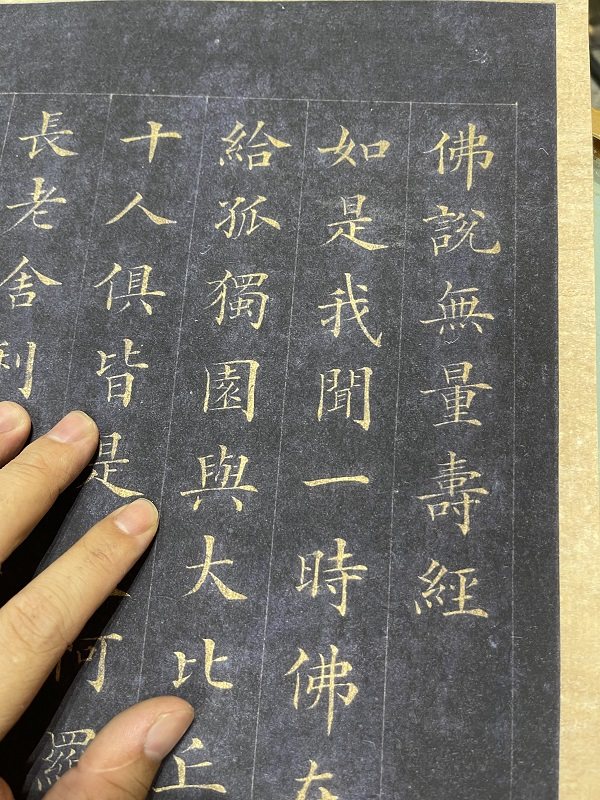 佛説無量壽經
如是我聞一時佛在
給孤獨園與大比丘
十人俱皆是阿羅
長老舍利